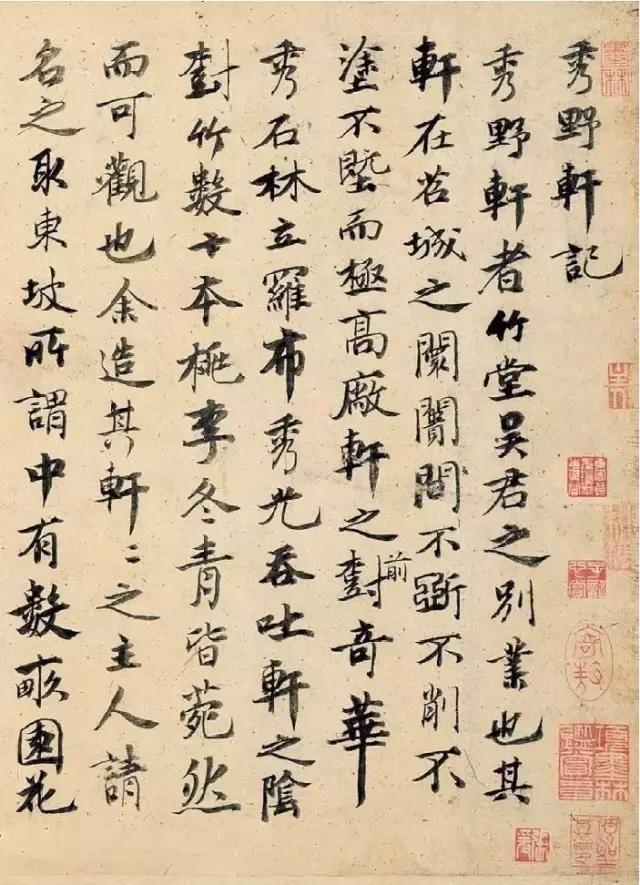 秀野軒記
秀野軒者竹堂吳君之別業也其
軒在苕城之闤闠間不斲不削不
塗不塈而極高厰軒之對前奇華
秀石林立羅布秀光吞吐軒之陰
對竹數十本桃李冬青皆菀然
而可觀也余造其軒〻之主人請
名之取東坡所謂中有數畝園花